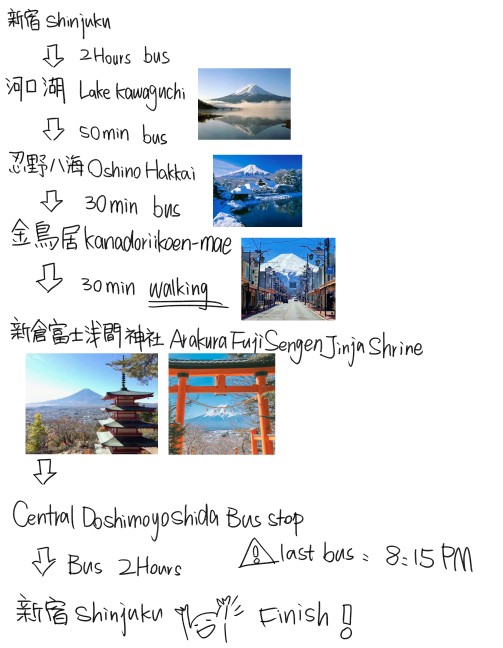 新宿 Shinjuku
2Hours bus
河口湖 Lake Kawaguchi
50min bus
忍野八海 Oshino Hakkai
30min bus
金鳥居 kanadoriikoen-mae
30min walking
新倉富士浅間神社 Arakura Fuji Sengen Jinja Shrine
Central Doshimoyoshida Bus stop
Bus 2Hours
last bus: 8:15 PM
新宿 Shinjuku Finish!